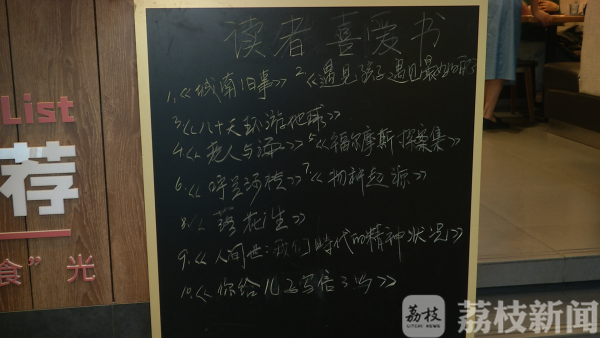 读者喜爱书
1.《城南旧事》 2.《遇见孩子 遇见最好的
3.《八十天环游地球》
4.《老人与海》 5.《福尔摩斯探案集》
6.《呼兰河传》 7.《物种起源》
8.《落花生》
9.《人间世:我们时代的精神状况》
10.《你给儿子写信了吗》
List
荐
食”光
荔枝
LITCHI NEWS
荔枝新闻